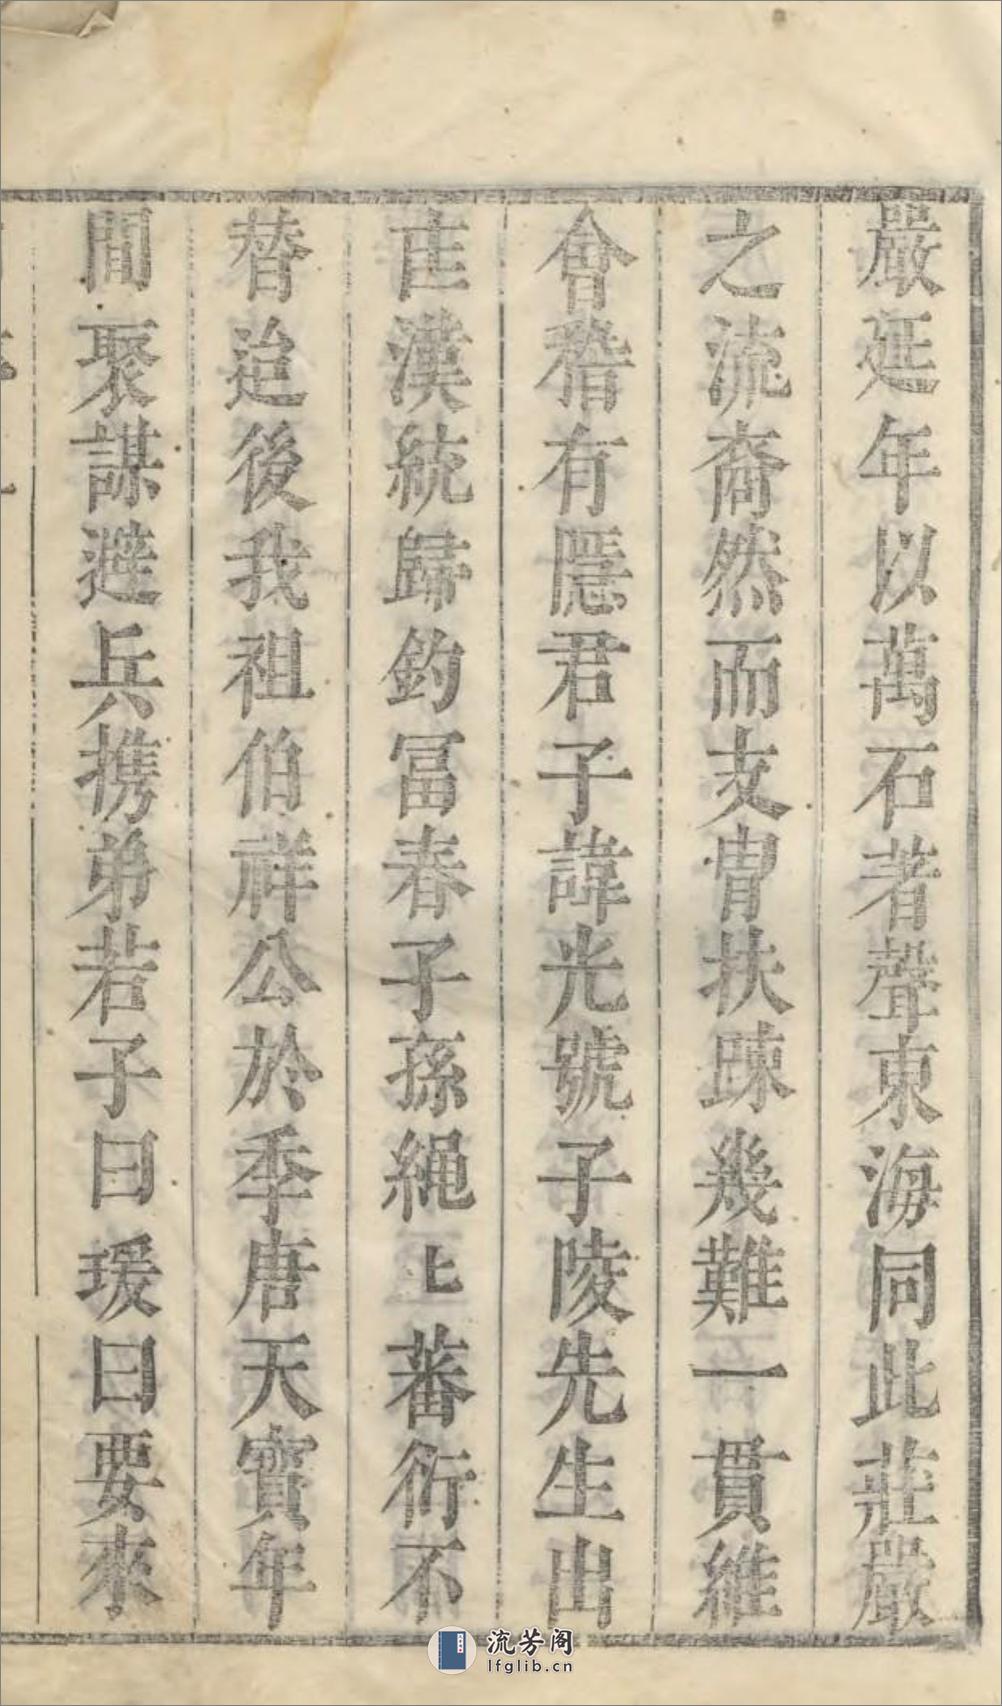 嚴延年以萬石著聲東海同此莊嚴
之流裔然而支冑扶踈幾難一貫維
會稽有隱君子諱光號子陵先生出
匡漢統歸釣冨春子孫繩〻蕃衍不
替迨後我祖伯祥公於季唐天寶年
間聚謀避兵携弟若子曰瑗曰要來
流芳阁
lfglib.cn